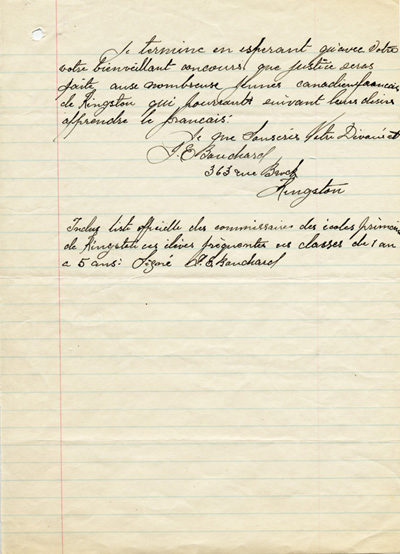 Je termine en esperant qu'avec Votre
votre bienveillant concours que justice seras
faite aux nombreux jeunes canadiens francais
de Kingston qui pourront suivant leurs desirs
apprendre le francais:
Je me Souscris Votre Devoué et
J. E Bouchard
363 rue Brock
Kingston
Inclus liste officielle des commissaires des écoles
de Kingston ces élèves fréquentes ces classes de 1 an
a 5 ans: Signé J. E Bouchard